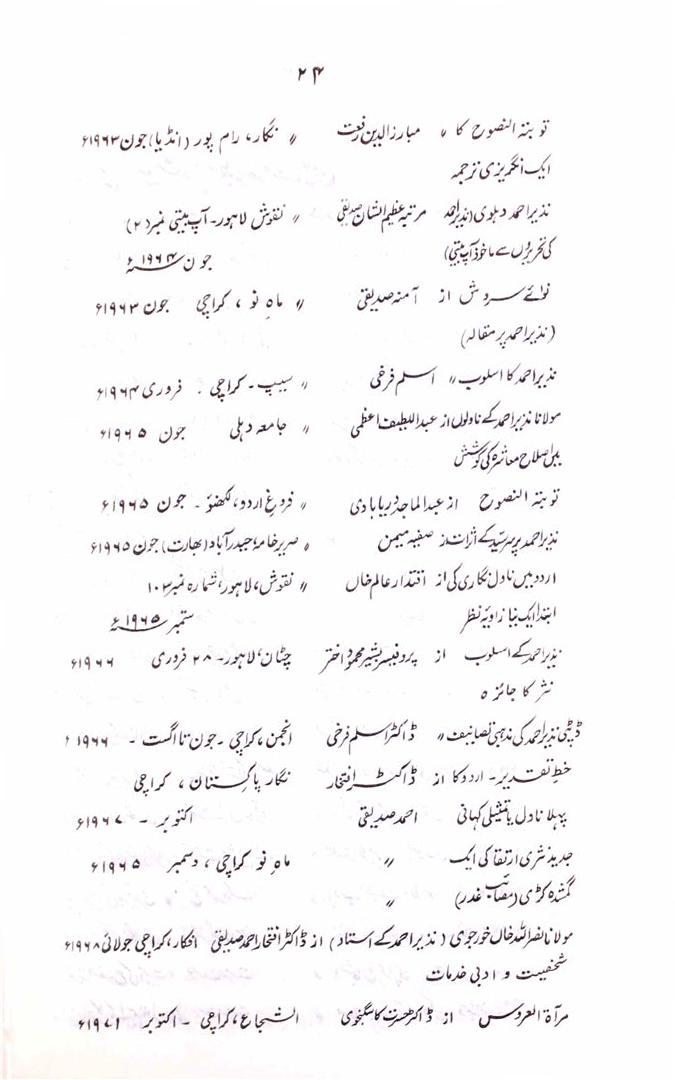 ۲۴
توبتہ النصوح کا 〃 مبارزالدین رفعت 〃 نگار، رام پور (انڈیا) جون ۱۹۶۳ء
ایک انگریزی ترجمہ
نذیر احمد دہلوی (نذیر احمد مرتبہ عظیم الشان صدیقی 〃 نقوش لاہور۔ آپ بیتی نمبر (۲)
کی تحریروں سے ماخوذ آپ بیتی) جون ۱۹۶۴ء
نوائے سروش از آمنہ صدیقی 〃 ماہِ نو ، کراچی جون ۱۹۶۳ء
(نذیر احمد پر مقالہ)
نذیر احمد کا اسلوب 〃 اسلم فرخی 〃 سیپ۔ کراچی . فروری ۱۹۶۴ء
مولانا نذیر احمد کے ناولوں از عبداللطیف اعظمی 〃 جامعہ دہلی جون ۱۹۶۵ء
میں اصلاح معاشرہ کی کوشش
توبتہ النصوح از عبدالماجد دریابادی 〃 فروغِ اردو، لکھنؤ ۔ جون ۱۹۶۵ء
نذیر احمد پر سرسیّد کے اثرات از صفیہ میمن 〃 صریر خامہ حیدرآباد (بھارت) جون ۱۹۶۵ء
اردو میں ناول نگاری کی از اقتدار عالم خاں 〃 نقوش، لاہور، شمارہ نمبر ۱۰۳
ابتدا ایک نیا زاویہ نظر ستمبر ۱۹۶۵ء
نذیر احمد کے اسلوب از پروفیسر بشیر محمود اختر چٹان، لاہور۔ ۲۸ فروری ۱۹۶۶ء
نثر کا جائزہ
ڈپٹی نذیر احمد کی مذہبی تصانیف 〃 ڈاکٹر اسلم فرخی انجمن ، کراچی ۔ جون تا اگست ۔ ۱۹۶۶ء
خطِ تقدیر۔ اردو کا از ڈاکٹر افتخار نگار پاکستان ، کراچی
پہلا ناول یا تمثیلی کہانی احمد صدیقی اکتوبر ۔ ۱۹۶۷ء
جدید نثری ارتقا کی ایک 〃 ماہِ نو کراچی ، دسمبر ۱۹۶۵ء
گمشدہ کڑی (مصائب غدر) 〃
مولانا نصر اللہ خاں خورجوی (نذیر احمد کے استاد) از ڈاکٹر افتخار احمد صدیقی افکار، کراچی جولائی ۱۹۶۸ء
شخصیت و ادبی خدمات
مرآۃ العروس از ڈاکٹر حسرت کاسگنجوی الشجاع ، کراچی ۔ اکتوبر ۱۹۷۱ء